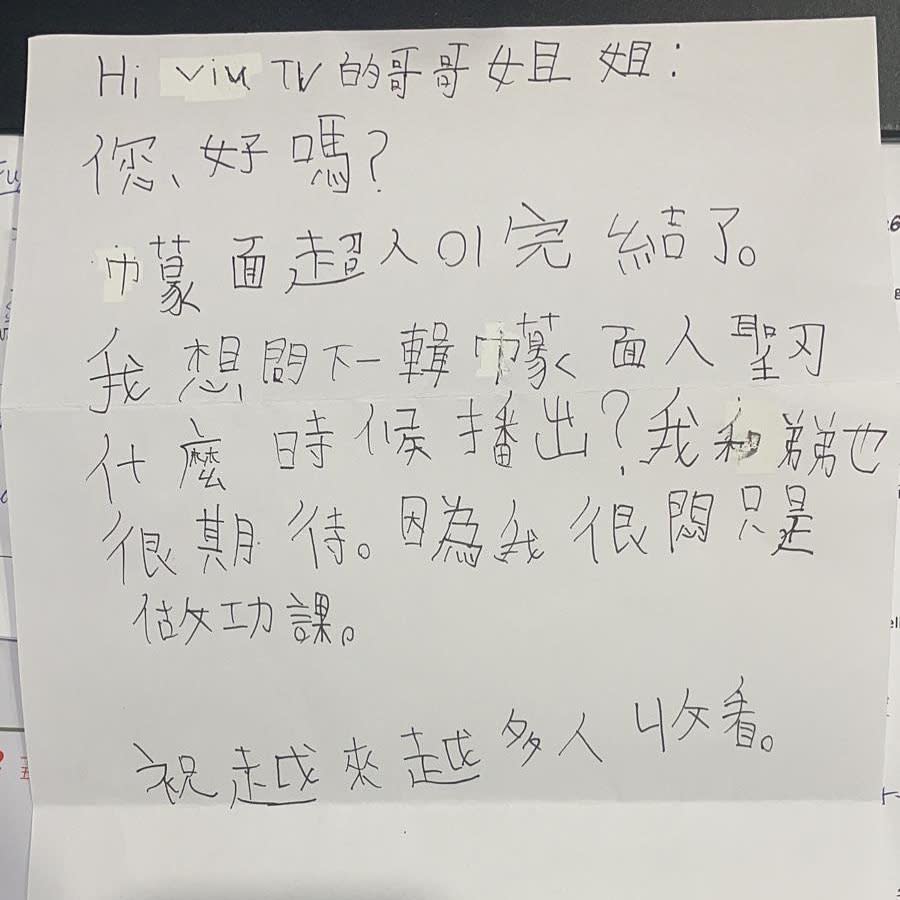 Hi viu TV 的哥哥姐姐：
您、好嗎？
幪面超人01完結了。
我想問下一輯幪面人聖刃
什麼時候播出？我和弟弟也
很期待。因為我很悶只是
做功課。
祝越來越多人收看。